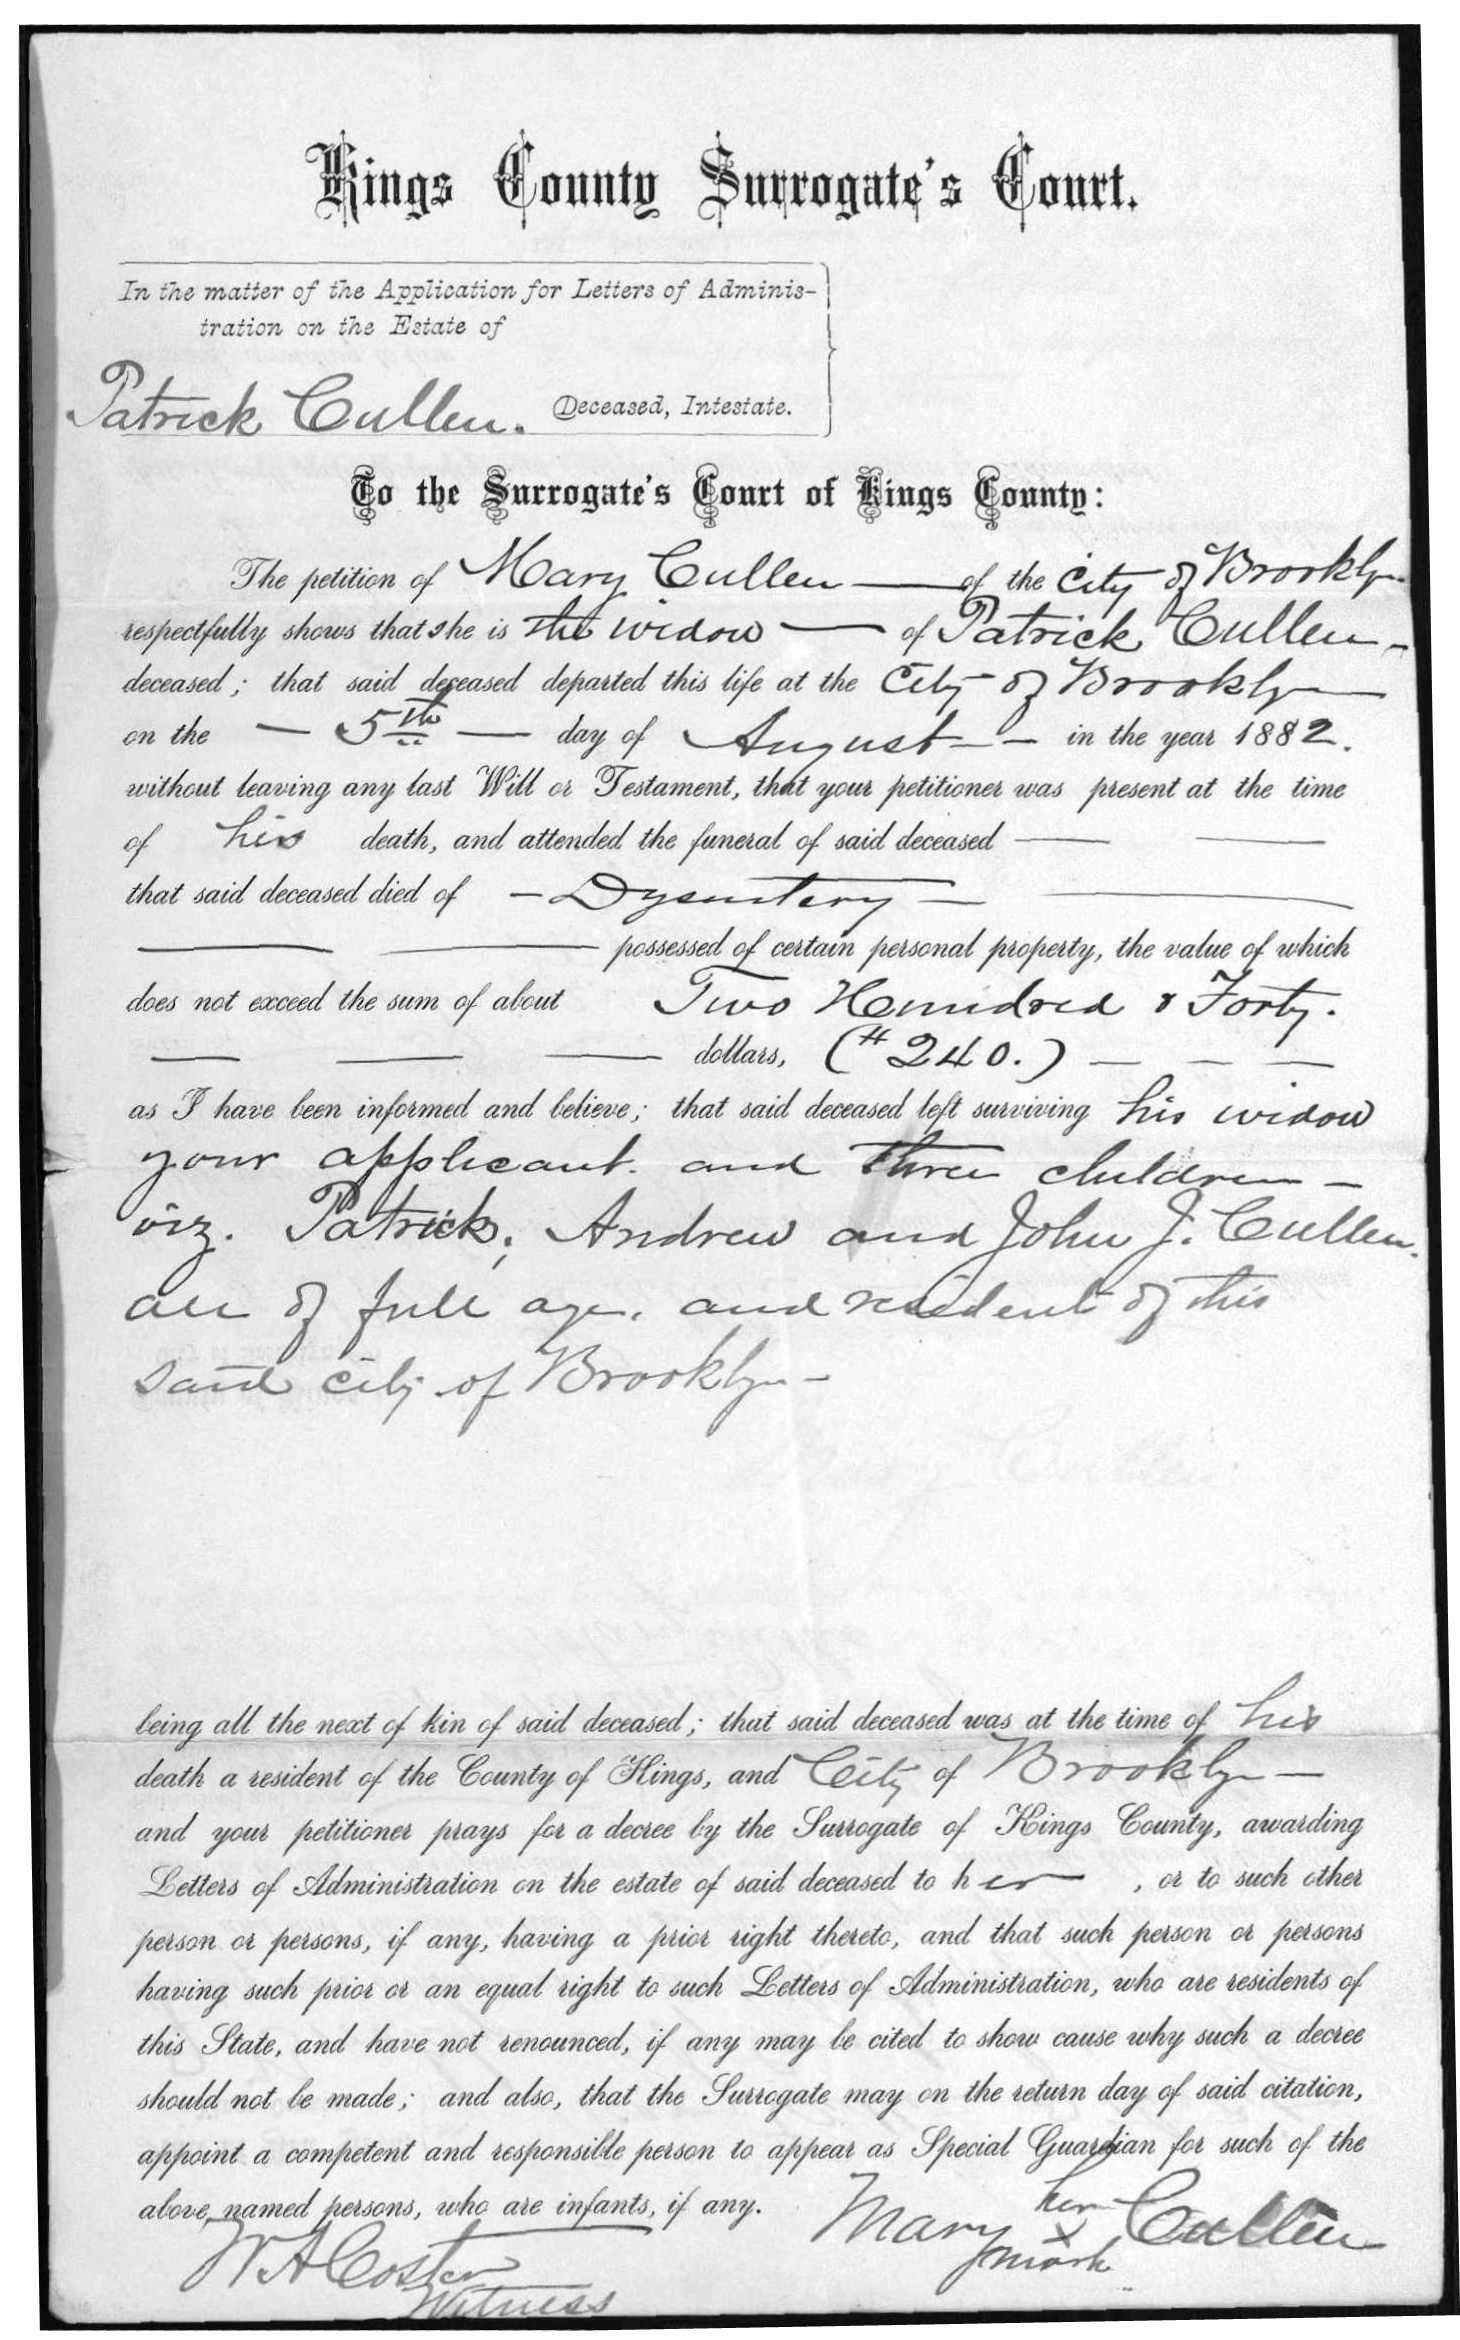 Kings County Surrogate's Court.
In the matter of the Application for Letters of Adminis-
tration on the Estate of
Patrick Cullen. Deceased, Intestate.
To the Surrogate's Court of Kings County:
The petition of Mary Cullen of the City of Brooklyn
respectfully shows that she is the widow of Patrick Cullen
deceased; that said deceased departed this life at the City of Brooklyn
on the 5th day of August in the year 1882.
without leaving any last Will or Testament, that your petitioner was present at the time
of his death, and attended the funeral of said deceased
that said deceased died of Dysentery
possessed of certain personal property, the value of which
does not exceed the sum of about Two Hundred & Forty.
dollars, (#240.)
as I have been informed and believe; that said deceased left surviving his widow
your applicant. and three children
viz. Patrick, Andrew and John J. Cullen.
all of full age. and resident of this
said city of Brooklyn
being all the next of kin of said deceased; that said deceased was at the time of his
death a resident of the County of Kings, and City of Brooklyn
and your petitioner prays for a decree by the Surrogate of Kings County, awarding
Letters of Administration on the estate of said deceased to her, or to such other
person or persons, if any, having a prior right thereto, and that such person or persons
having such prior or an equal right to such Letters of Administration, who are residents of
this State, and have not renounced, if any may be cited to show cause why such a decree
should not be made; and also, that the Surrogate may on the return day of said citation,
appoint a competent and responsible person to appear as Special Guardian for such of the
above named persons, who are infants, if any.
Mary her x mark Cullen
W A Coster
Witness